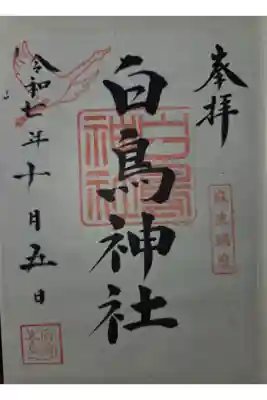 奉拝
白鳥神社
白鳥
神社
令和七年十月五日